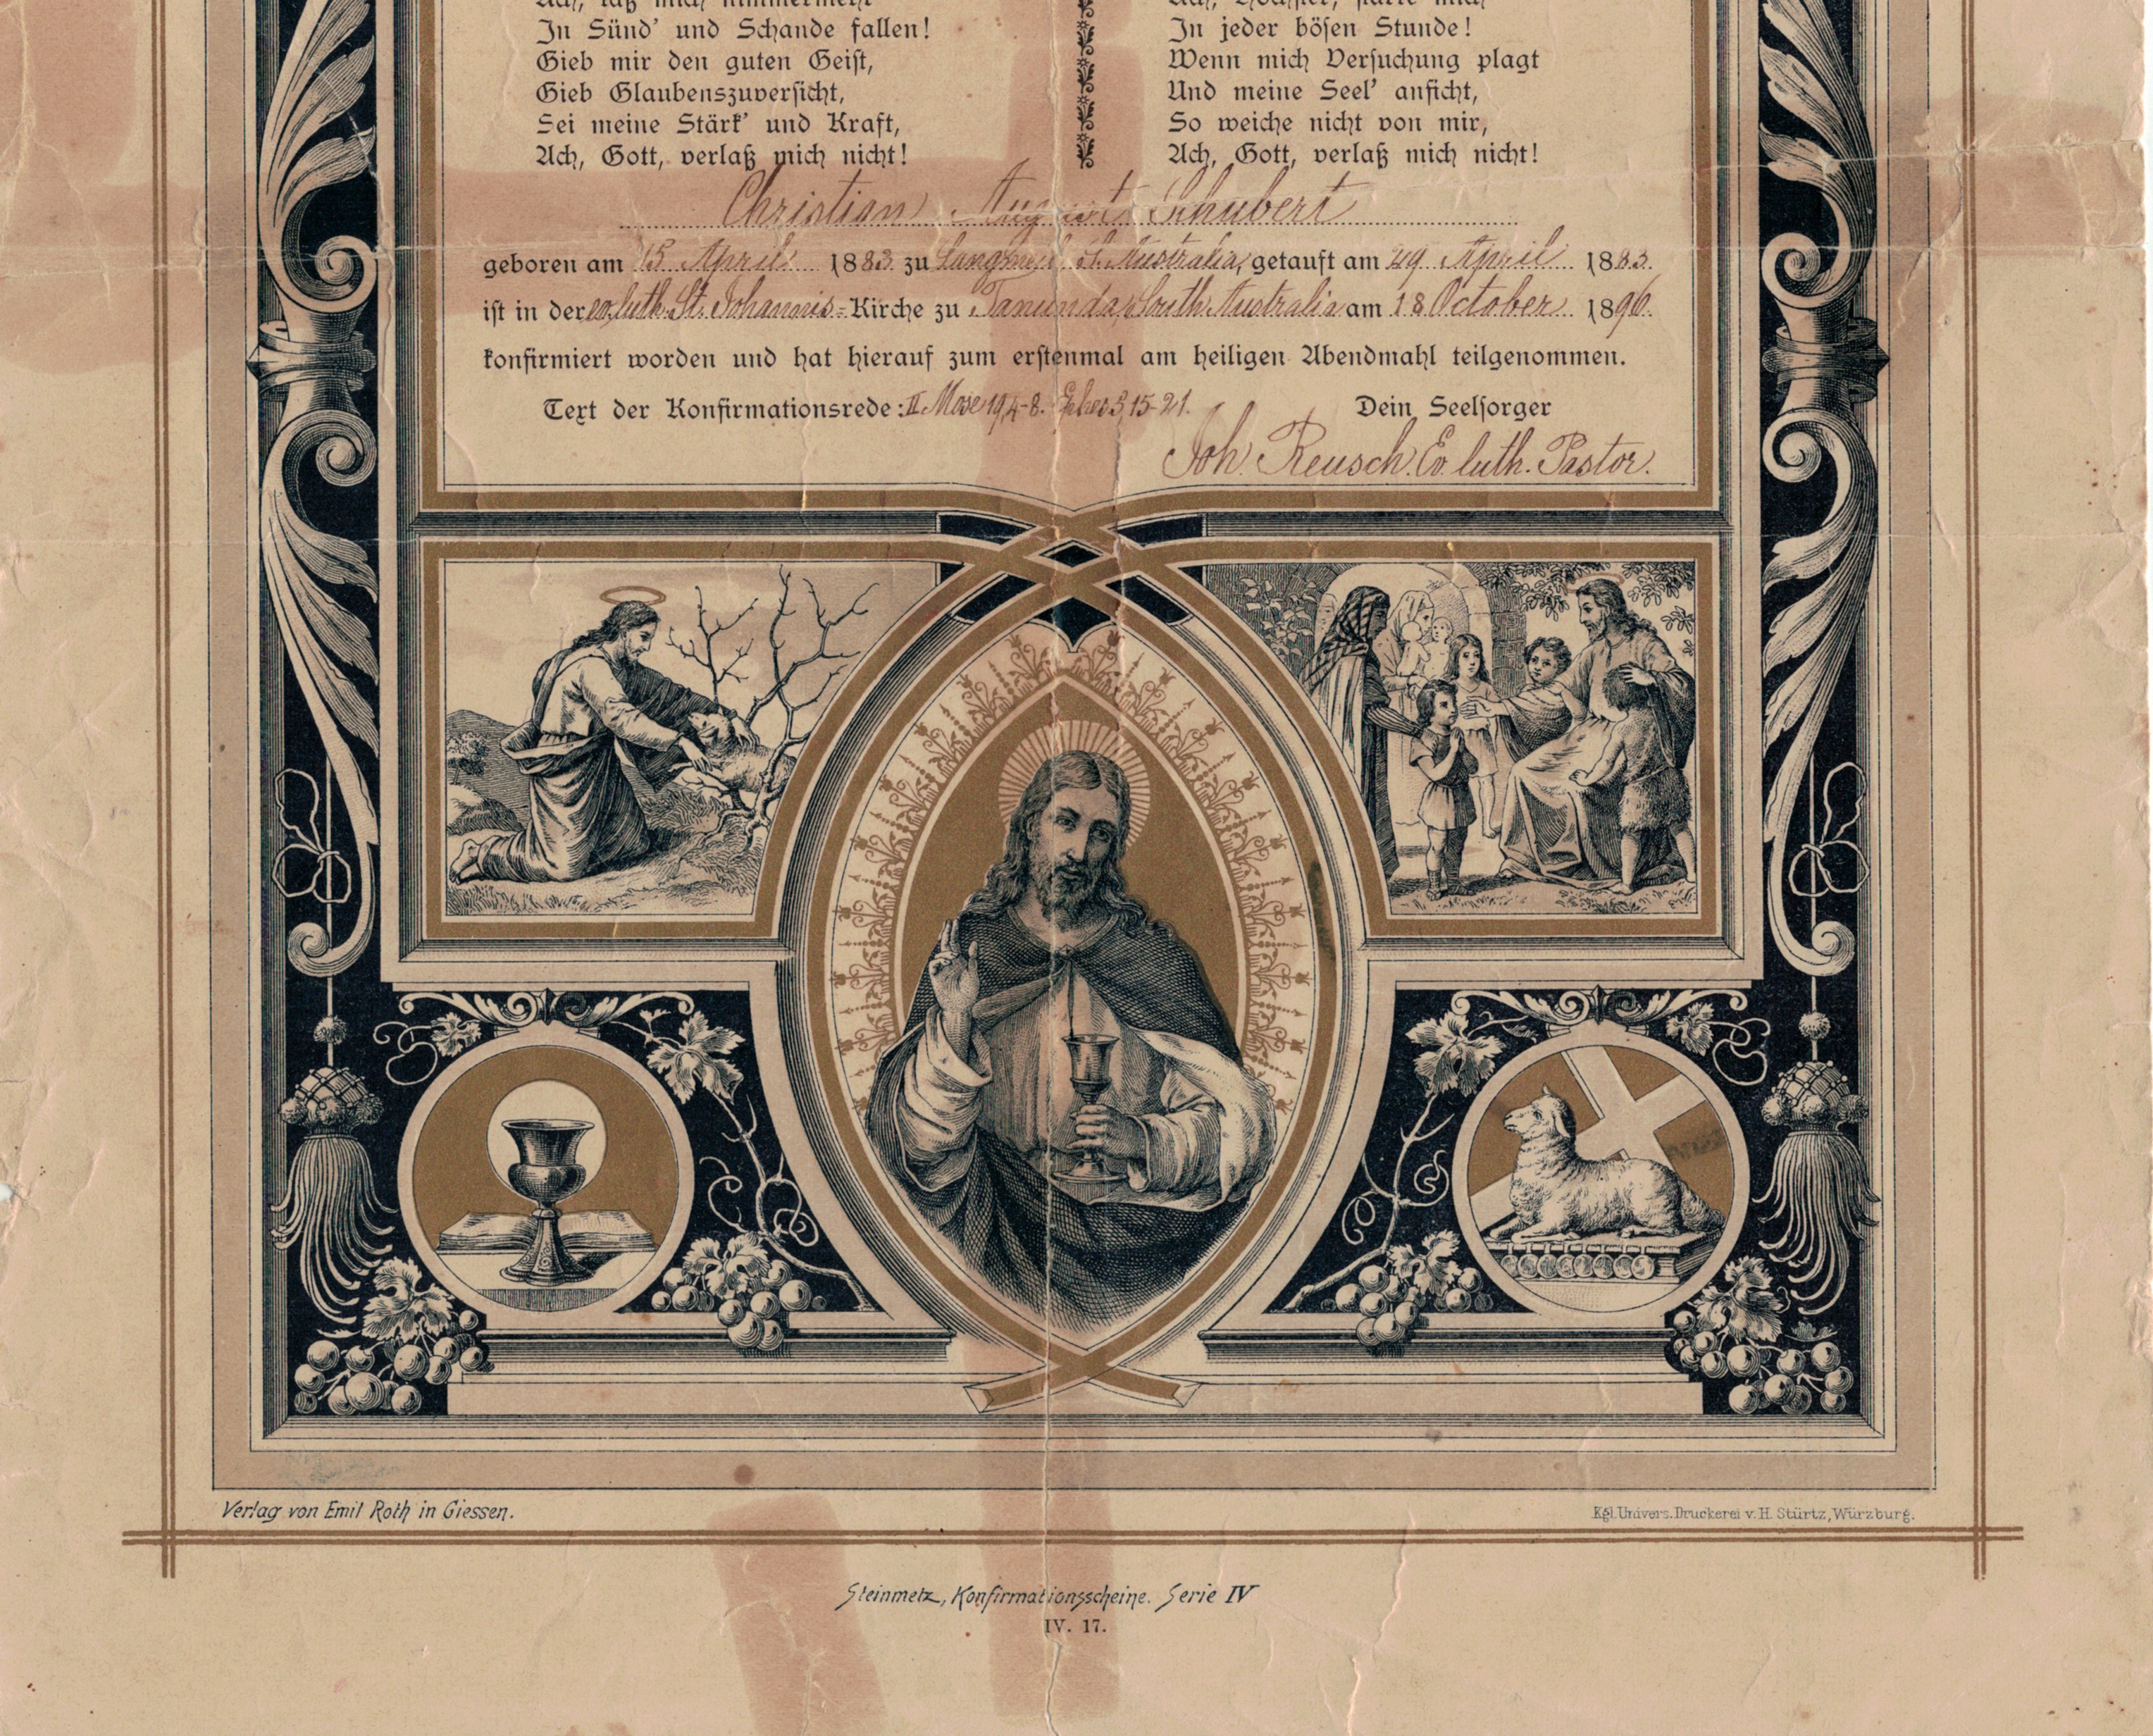 In Sünd' und Schande fallen!
Gieb mir den guten Geist,
Gieb Glaubenszuversicht,
Sei meine Stärk' und Kraft,
Ach, Gott, verlaß mich nicht!
In jeder bösen Stunde!
Wenn mich Versuchung plagt
Und meine Seel' anficht,
So weiche nicht von mir,
Ach, Gott, verlaß mich nicht!
Christian August Schubert
geboren am 15 April 1883 zu Langmeil, St. Australia, getauft am 29 April 1883.
ist in der ev. luth. St. Johannis-Kirche zu Tanunda, South Australia am 18 October 1896.
konfirmiert worden und hat hierauf zum erstenmal am heiligen Abendmahl teilgenommen.
Text der Konfirmationsrede: II Mose 19,4-8. Ephes 5,15-21. Dein Seelsorger
Joh. Reusch. Ev. luth. Pastor.
Verlag von Emil Roth in Giessen.
Kgl. Univers. Druckerei v. H. Stürtz, Würzburg.
Steinmetz, Konfirmationsscheine. Serie IV
IV. 17.